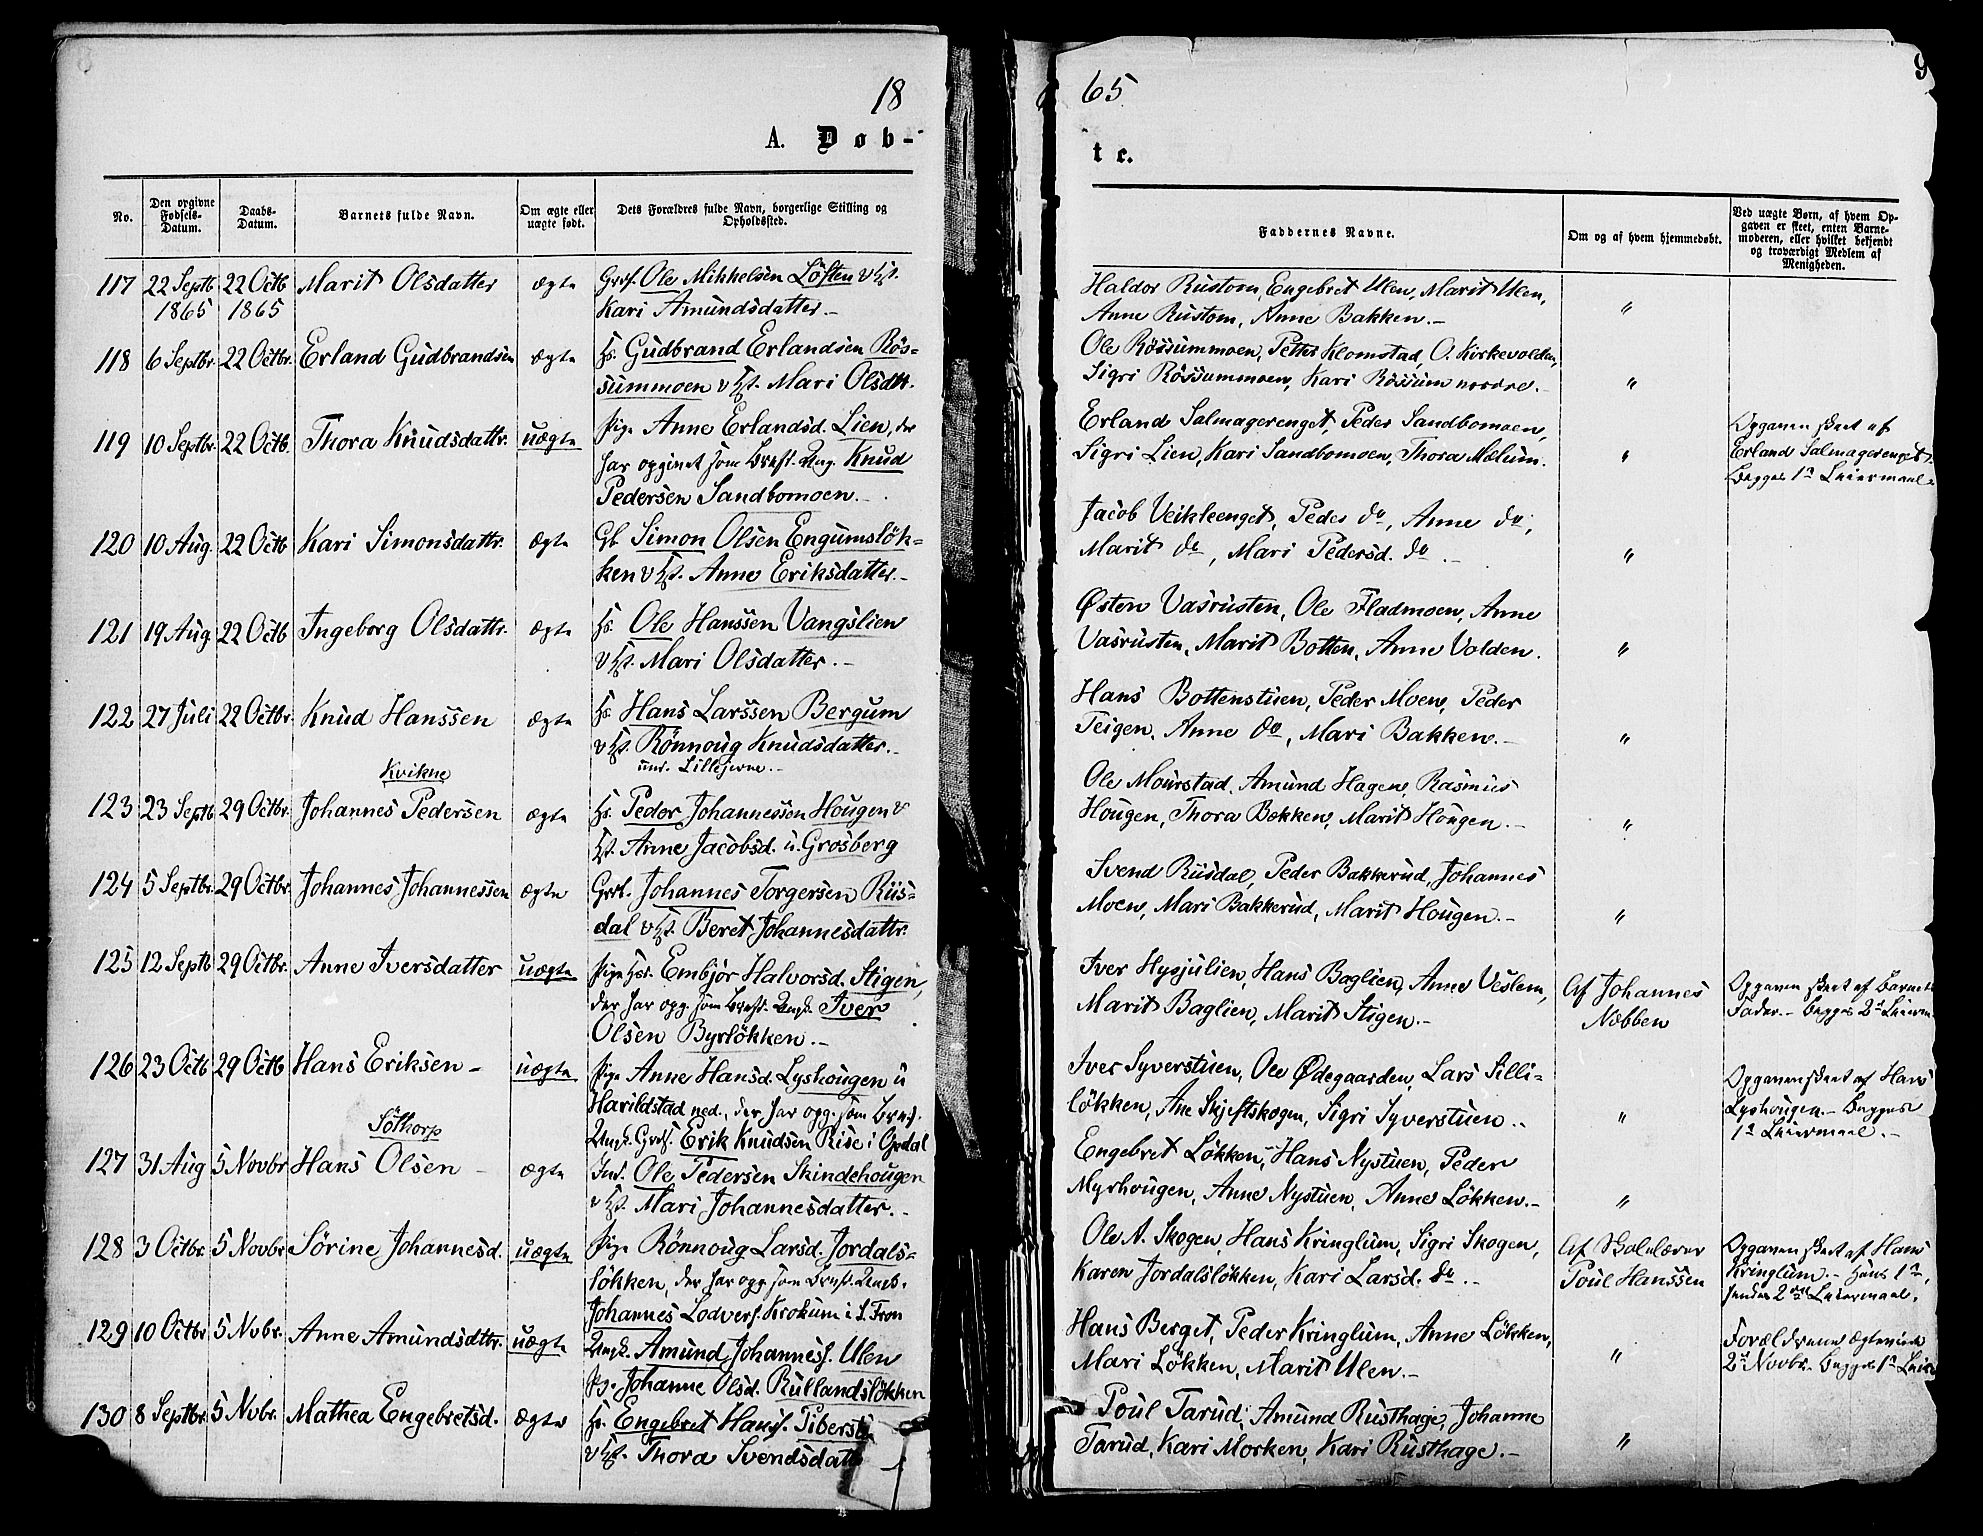 18
65
9
A. Døb-
te.
No.
Den opgivne Fødsels-Datum.
Daabs-Datum.
Barnets fulde Navn.
Om ægte eller uægte født.
Dets Forældres fulde Navn, borgerlige Stilling og Opholdssted.
Faddernes Navne.
Om og af hvem hjemmedøbt.
Ved uægte Børn, af hvem Opgaven er skeet, enten Barnemoderen, eller hvilket bekjendt og troværdigt Medlem af Menigheden.
117 22 Septb 22 Octb Marit Olsdatter ægte Ole Mikkelsen Löften
1865 1865 Kari Amundsdatter.-
Haldor Rustom, Engebret Ulen, Marit Ulen,
Anne Rustom, Anne Bakken.- "
118 6 Septbr. 22 Octbr. Erland Gudbrandsen ægte Hs. Gudbrand Erlandsen Rös-
summoen v Hst. Mari Olsdtr.
Ole Rössummoen, Petter Klomstad, O. Kirkevolden,
Sigri Rössummoen, Kari Rössum nordre.- "
119 10 Septbr. 22 Octb. Thora Knudsdattr. uægte Pige Anne Erlandsd. Lien, der
har opgivet som Brnf. Ung. Knud
Pedersen Sandbomoen.-
Erland Salmagerenget, Peder Sandbomoen,
Sigri Lien, Kari Sandbomoen, Thora Mælum. "
Opgaven skeet af
Erland Salmagerenget.
Begges 1ste Leiermaal.
120 10 Aug 22 Octb Kari Simonsdattr. ægte Gb Simon Olsen Engumslök-
ken v Hst. Anne Eriksdatter.-
Jacob Veikleenget, Peder do, Anne do,
Marit do, Mari Pedersd. do.- "
121 19 Aug 22 Octb Ingeborg Olsdattr. ægte Hs. Ole Hanssen Vangslien
v Hst. Mari Olsdatter.-
Østen Vasrusten, Ole Fladmoen, Anne
Vasrusten, Marit Botten, Anne Volden. "
122 27 Juli 22 Octbr. Knud Hanssen ægte Hs. Hans Larssen Bergum
v Hst. Rönnoug Knudsdatter.-
Hans Bottenstuen, Peder Moen, Peder
Teigen, Anne do, Mari Bakken.- "
Kvikne
123 23 Septb 29 Octbr. Johannes Pedersen ægte Hs. Peder Johannessen Hougen v
Hst. Anne Jacobsd. u. Grosberg
Ole Mourstad, Amund Hagen, Rasmus
Hougen, Thora Bakken, Marit Hougen.- "
124 5 Septbr. 29 Octbr. Johannes Johannessen ægte Johannes Torgersen Rus-
dal v Hst. Beret Johannesdattr.
Svend Rusdal, Peder Bakkerud, Johannes
Moen, Mari Bakkerud, Marit Hougen.- "
125 12 Septb 29 Octbr. Anne Iversdatter uægte Pige Embjör Halvorsd. Stigen,
der har opg. som Brnf. Ungk. Iver
Olsen Byrlökken.-
Iver Hysjulien, Hans Baglien, Anne Veslem,
Marit Baglien, Marit Stigen.-
Af Johannes
Næbben
Opgaven skeet af Barnets
Fader.- Begges 2det Leierm
126 23 Octb 29 Octb Hans Eriksen - uægte Pige Anne Hansd. Lyshougen u
Harildstad ned., der har opg. som Brnf.
Ungk. Erik Knudsen Rise i Opdal
Iver Syverstuen, Ole Ødegaarden, Lars Silli-
lökken, Ane Skjeftskogen, Sigri Syverstuen.. "
Opgaven skeet af Hans
Lyshougen.- Begges
1ste Leiermaal.-
Söthorp
127 31 Aug 5 Novbr Hans Olsen - ægte Ind. Ole Pedersen Skindehougen
v Hst. Mari Johannesdatter.-
Engebret Lökken, Hans Nystuen, Peder
Myrhougen, Anne Nystuen, Anne Lökken.- "
128 3 Octbr. 5 Novbr Sörine Johannesd. uægte Pige Rönnoug Larsd. Jordals-
lökken, der har opg som Brnf. Ungk.
Johannes Lodvers. Krokum i S. Fron
Ole A. Skogen, Hans Kringlum, Sigri Skogen,
Karen Jordalslökken, Kari Larsd. do.-
Af Skolelærer
Poul Hanssen
Opgaven skeet af Hans
Kringlum.- Hans 1ste,
hendes 2det Leiermaal.
129 10 Octbr. 5 Novbr. Anne Amundsdttr. uægte Ungk. Amund Johanness. Ulen
Pg. Johanne Olsd. Rullandslökken
Hans Berget, Peder Kringlum, Anne Lökken,
Mari Lökken, Marit Ulen.- "
Forældrene Ægteviede
2d Novbr. Begges 1ste Leierm
130 8 Septbr. 5 Novbr. Mathea Engebretsd. ægte Hs. Engebret Hans.
v Hst. Thora Svendsdatter
Poul Tarud, Amund Rusthage, Johanne
Tarud, Kari Morken, Kari Rusthage.- "